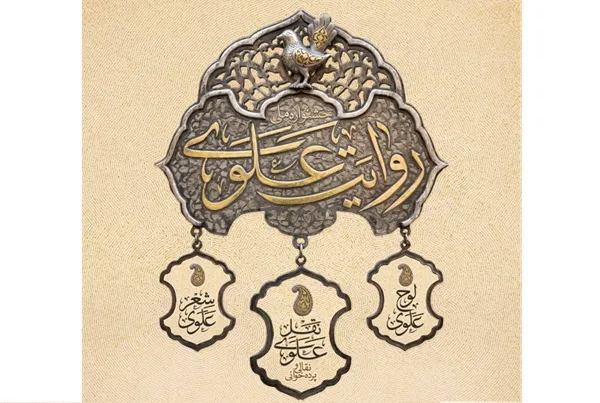 جشنواره ملی
روایت علوی
لوح
علوی
نقل
علوی
نقالی و
پرده‌خوانی
شعر
علوی